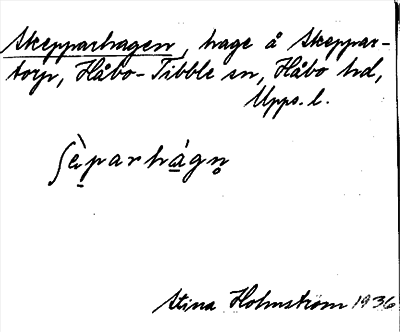 Skepparhagen, hage å Skeppar-
torp, Håbo-Tibble sn, Håbo hd,
Upps. l.
ʃèparhágn̥
Stina Holmström 1936